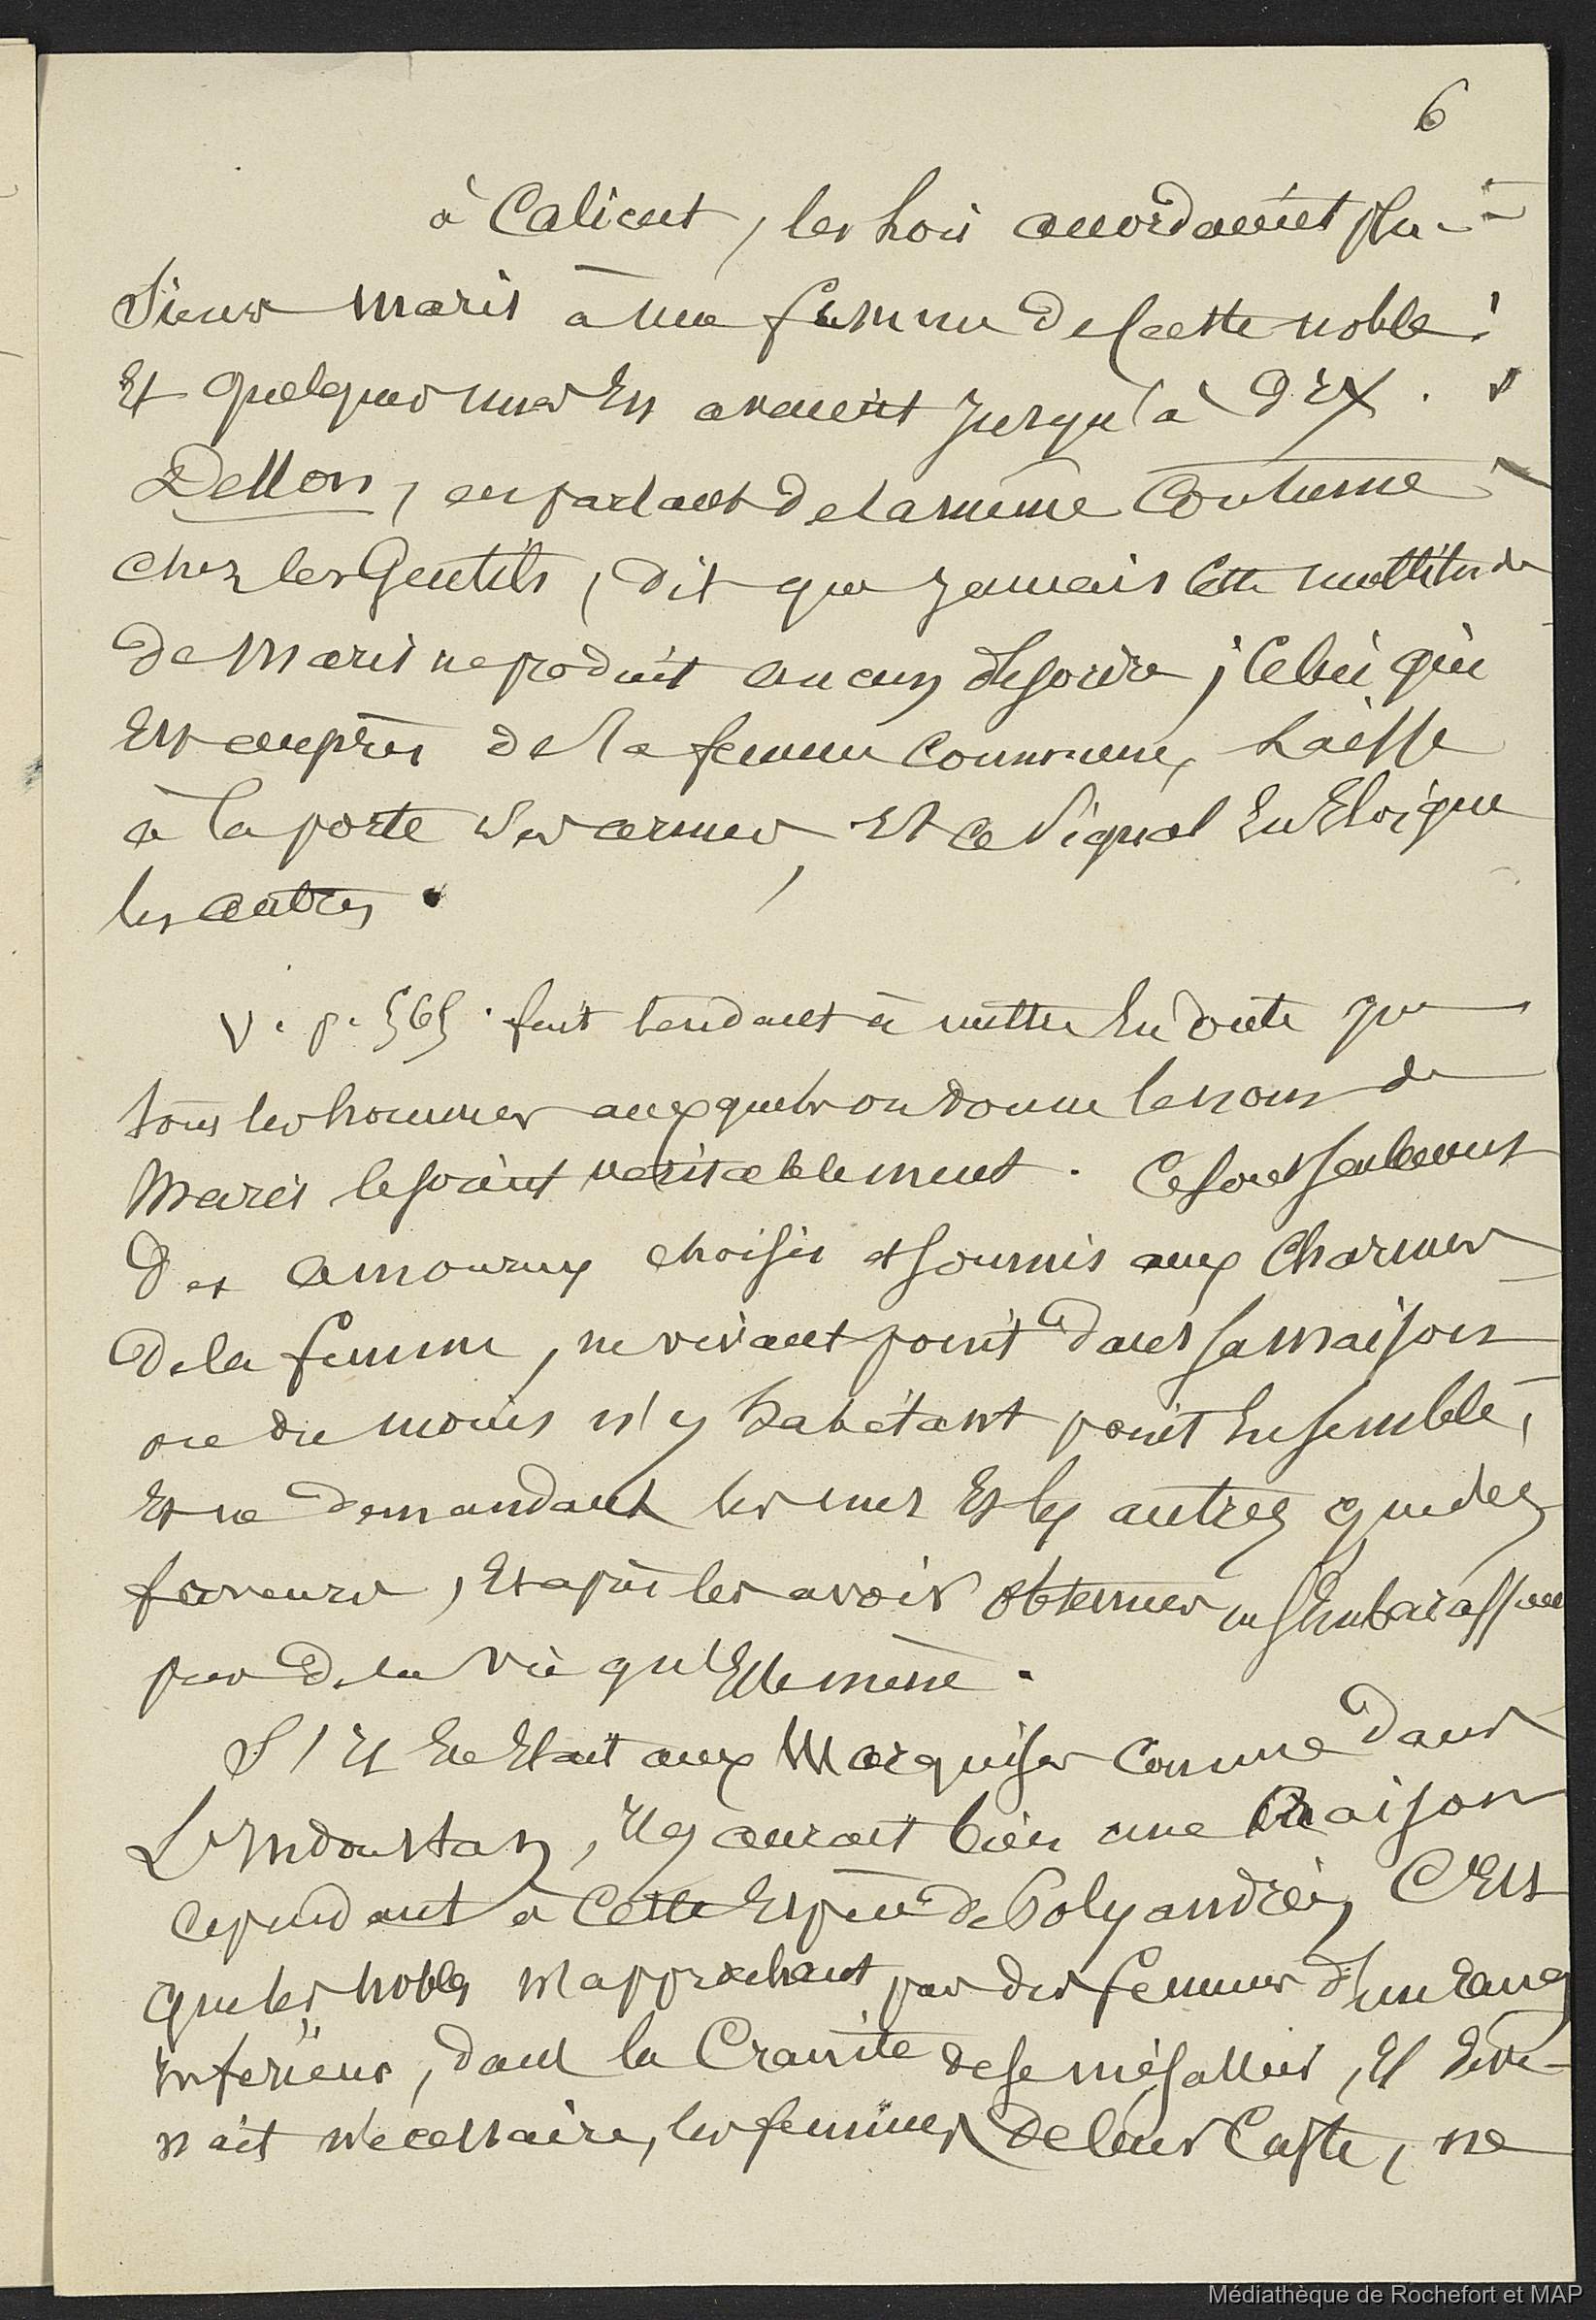 6
à Calicut, les Lois accordaient plu-
sieurs maris à une femme de Caste noble ;
Et quelques unes En avaient jusqu'à dix.
Dellon, en parlant de la même Coutume
chez les Gentils, dit que jamais cette multitude
de Maris ne produit aucun désordre ; Celui qui
Est auprès de la femme commune, Laisse
à la porte ses armes, Et ce Signal En Eloigne
les autres.
V. p. 565. fait tendant à mettre En doute que
tous les hommes auxquels on donne le nom de
Maris le soient veritablement. Ce sont seulement
des amoureux choisis et soumis aux Charmes
de la femme, ne vivant point dans sa maison
ou du moins n'y habitant point Ensemble,
Et ne demandant les uns Et les autres que des
faveurs, Et après les avoir obtenues ne s'Embarassant
pas de la vie qu'Elle mène.
S'Il En Etait aux Marquises comme dans
L'Indoustan, Il y aurait bien une Raison
cependant à Cette Espèce de Polyandrie, C'Est
que les Nobles n'approchant pas des femmes d'un rang
Inférieur, dans la Crainte de se mésallier, Il deve-
nait nécessaire, les femmes de leur Caste, ne
Médiathèque de Rochefort et MAP